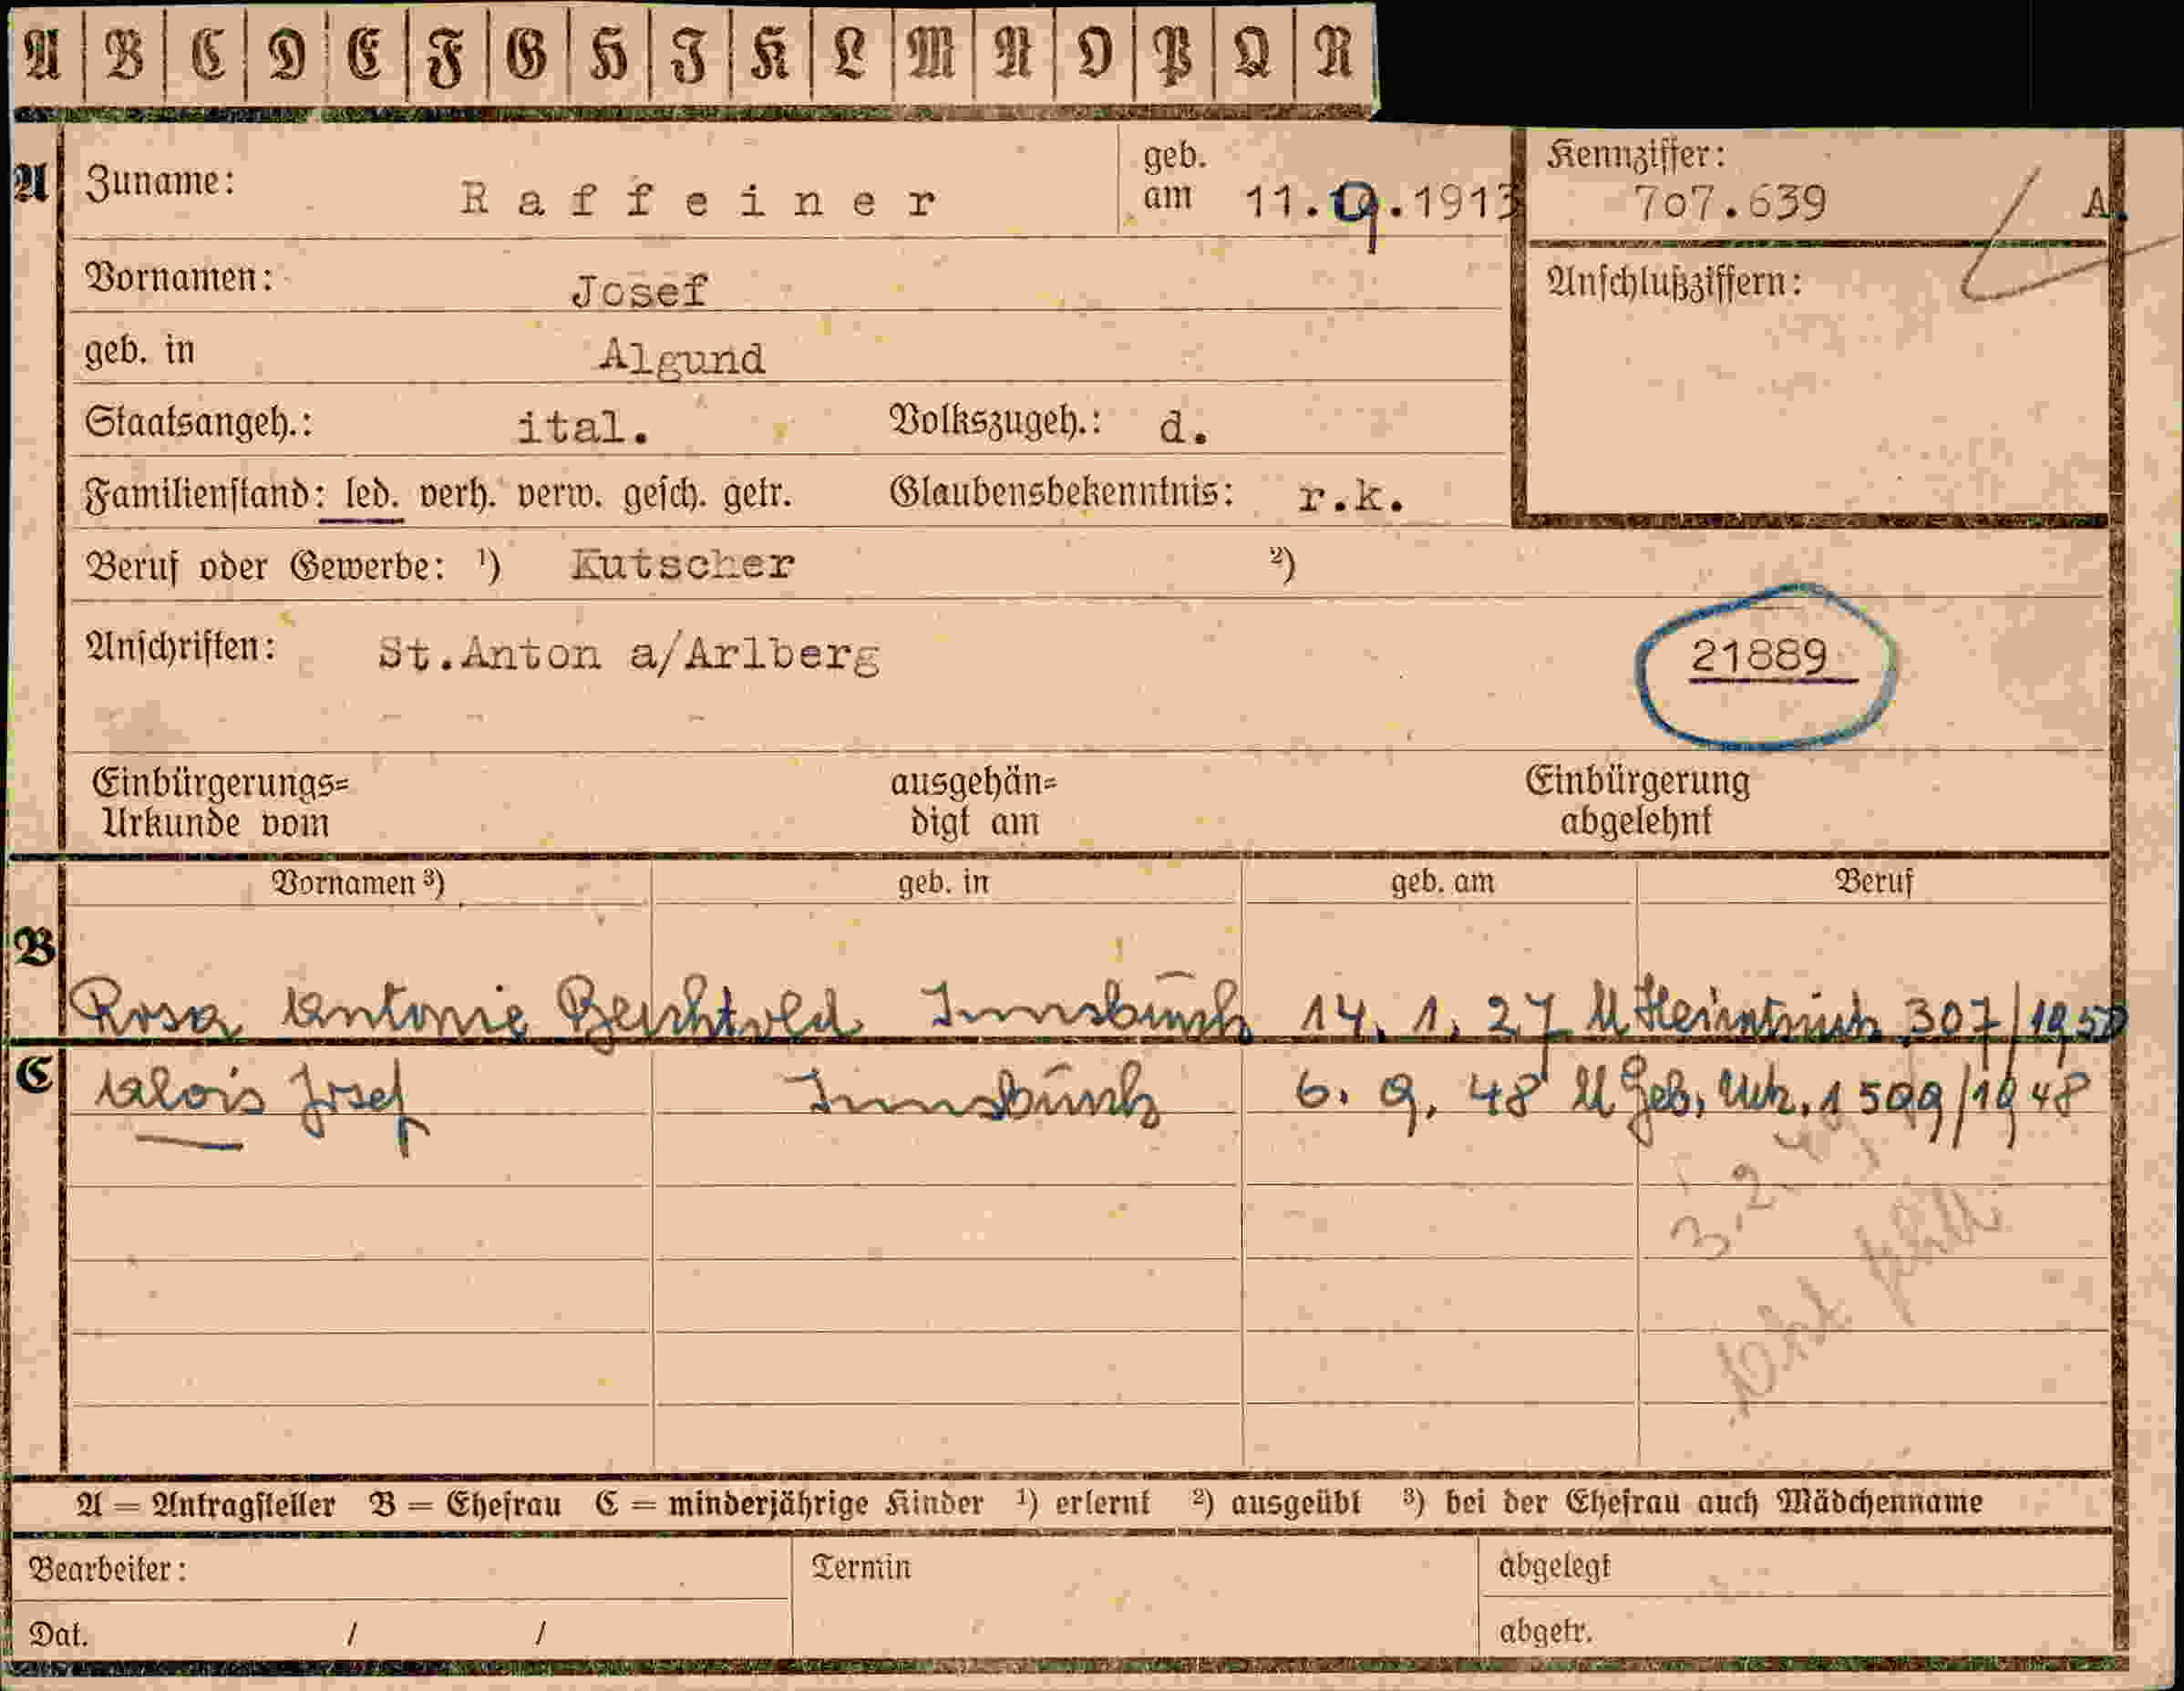 A B C D E F G H J K L M N O P Q R
A Zuname: Raffeiner geb. am 11.9.1913 Kennziffer: 707.639 A.
Vornamen: Josef Anschlußziffern:
geb. in Algund
Staatsangeh.: ital. Volkszugeh.: d.
Familienstand: led. verh. verw. gesch. getr. Glaubensbekenntnis: r.k.
Beruf oder Gewerbe: ¹) Kutscher ²)
Anschriften: St.Anton a/Arlberg 21889
Einbürgerungs= ausgehän= Einbürgerung
Urkunde vom digt am abgelehnt
Vornamen ³) geb. in geb. am Beruf
B
Rosa Antonie Berchtold Innsbruck 14. 1. 27 Heiratsurk. 307/1950
C Alois Josef Innsbruck 6. 9. 48 Geb. Urk. 1599/1948
3.2.49
A = Antragsteller B = Ehefrau C = minderjährige Kinder ¹) erlernt ²) ausgeübt ³) bei der Ehefrau auch Mädchenname
Bearbeiter: Termin abgelegt
Dat. / / abgetr.